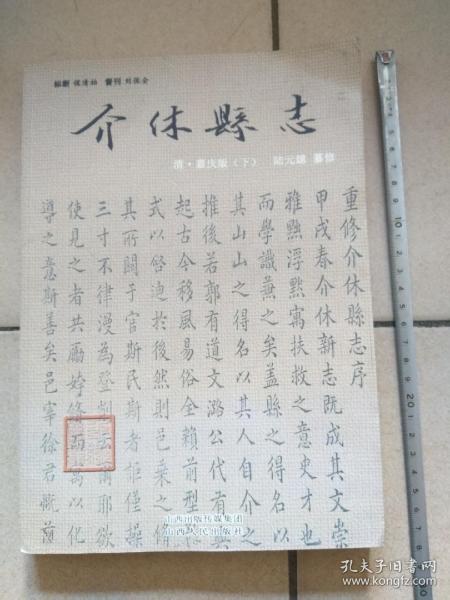 标题 侯清柏 督刊 刘保全
介休縣志
清·嘉庆版（下） 陆元鏸 纂修
重修介休縣志序
甲戌春介休新志既成其文崇
雅黜浮黙寓扶救之意史才也
而學識蕪之矣盖縣之得名以
其山山之得名以其人自介之
推後若郭有道文潞公代有其
起古今移風易俗全賴前型
式以啓迪於後然則邑乘之
其所關于官斯民斯者詎僅操
三寸不律漫為登耶欲
使見之者共勵以化
導之意斯善矣邑宰徐君慨前
山西出版传媒集团
山西人民出版社
10
20
孔夫子旧书网